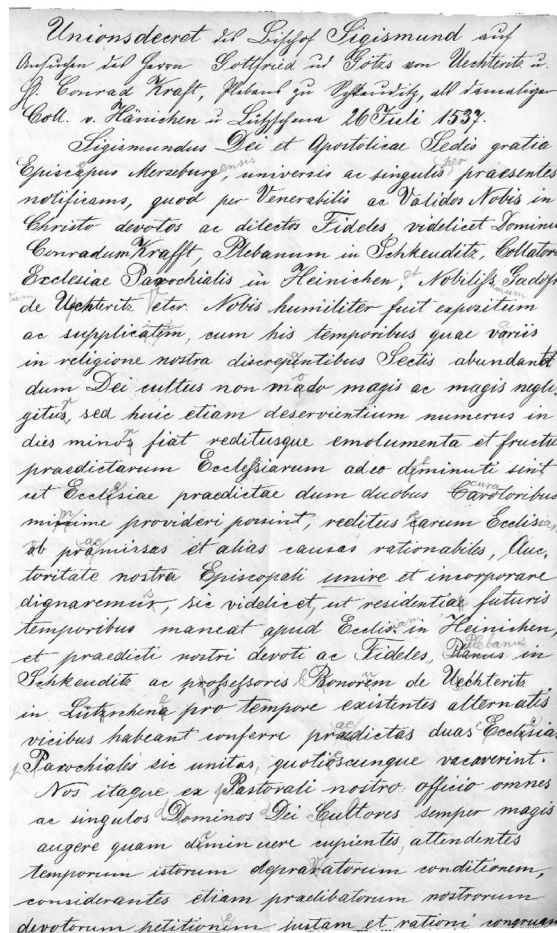 Unionsdecret des Bischof Sigismund auf
Ansuchen des Herrn Gottfried und Götze von Uechteritz u.
H. Conrad Kraft, Plebans zu Schkeuditz, als damaliger
Coll. v. Hänichen u Lützschena 26 Juli 1537.
Sigismundus Dei et Apostolicae Sedis gratia
Episcopus Merseburgensis, universis ac singulis per praesentes
notificams, quod per Venerabilis ac Validos Nobis in
Christo devotos ac dilectos Fideles, videlicet Dominu
Conradum Krafft, Plebanum in Schkeuditz, Collatore
Ecclesiae Parochialis in Heinichen, et Nobiliss
de Uechteritz eter. Nobis humiliter fuit expositum
ac supplicatem, cum his temporibus quae variis
in religione nostra discrepantibus Sectis abundant
dum Dei cultus non modo magis ac magis negli-
gitur, sed huic etiam deservientium numerus in
dies minor fiat reditusque emolumenta et fructu
praedictarum Ecclesiarum adeo deminuti sint
ut Ecclesiae praedictae dum duobus Curatoribus
minime provideri possint, reditus earum Ecclesia
ob praemissas et alias causas rationabiles, Auc-
toritate nostra Episcopali unire et incorporare
dignaremur, sic videlicet, ut residentiae futuris
temporibus maneat apud Ecclesiam in Heinichen,
et praedicti nostri devoti ac Fideles, Plebanus in
Schkeuditz ac professores Bonorum de Uechteritz
in Lützschena pro tempore existentes alternatis
vicibus habeant conferre praedictas duas Ecclesia
Parochiales sic unitas, quotiescunque vacaverint.
Nos itaque ex Pastorali nostro officio omnes
ac singulos Dominos Dei Cultores semper magis
augere quam diminuere cupientes, attendentes
temporum istorum depravatorum conditionem,
considerantes etiam praelibatorum nostrorum
devotorum petitionem iustam et rationi congruam